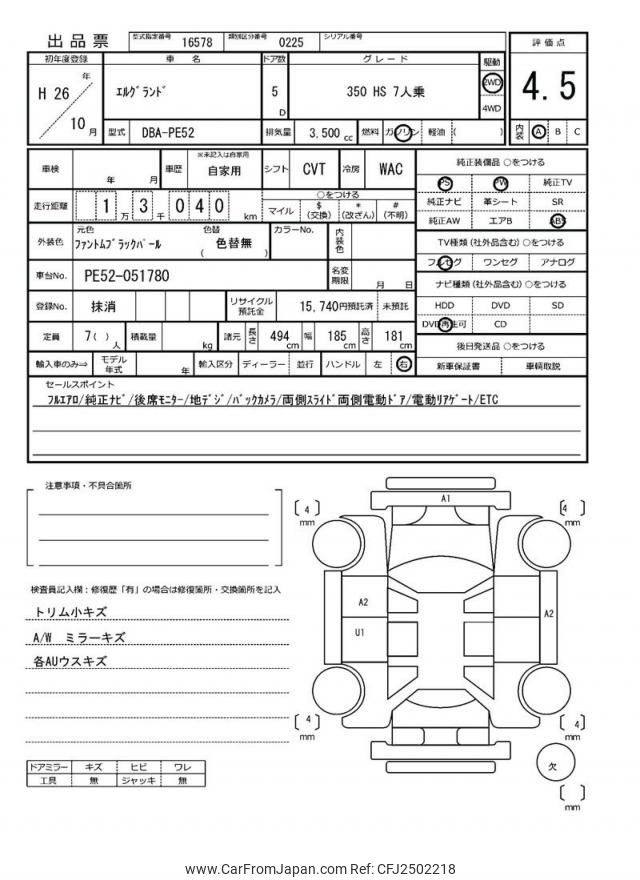 出品票 型式指定番号 16578 類別区分番号 0225 シリアル番号
初年度登録 車名 ドア数 グレード 駆動 評価点
H 26 年 10 月 ｴﾙｸﾞﾗﾝﾄﾞ 5 D 350 HS 7人乗 2WD 4WD 4.5
型式 DBA-PE52 排気量 3,500 cc 燃料 ガソリン 軽油 ( ) 内装 A B C
車検 年 月 車歴 ※未記入は自家用 自家用 シフト CVT 冷房 WAC
走行距離 1 万 3 千 0 4 0 km ○をつける
マイル $ (交換) * (改ざん) # (不明)
外装色 元色 ﾌｧﾝﾄﾑﾌﾞﾗｯｸﾊﾟｰﾙ 色替 ( 色替無 ) カラーNo. 内装色
車台No. PE52-051780 名変期限 月 日
登録No. 抹消 リサイクル預託金 15,740円預託済 未預託
定員 7( ) 人 積載量 kg 諸元 長さ 494 cm 幅 185 cm 高さ 181 cm
輸入車のみ⇒ モデル年式 年 輸入区分 ディーラー 並行 ハンドル 左 右
純正装備品 ○をつける
PS PW 純正TV
純正ナビ 革シート SR
純正AW エアB ABS
TV種類(社外品含む)○をつける
フルセグ ワンセグ アナログ
ナビ種類(社外品含む)○をつける
HDD DVD SD
DVD再生可 CD
後日発送品 ○をつける
新車保証書 車輌取説
セールスポイント
ﾌﾙｴｱﾛ/純正ﾅﾋﾞ/後席ﾓﾆﾀｰ/地ﾃﾞｼﾞ/ﾊﾞｯｸｶﾒﾗ/両側ｽﾗｲﾄﾞ両側電動ﾄﾞｱ/電動ﾘｱｹﾞｰﾄ/ETC
注意事項・不具合箇所
検査員記入欄：修復歴「有」の場合は修復箇所・交換箇所を記入
トリム小キズ
A/W ミラーキズ
各AUウスキズ
ドアミラー キズ ヒビ ワレ
工具 無 ジャッキ 無
A1
[ 4 ] mm
[ 4 ] mm
A2
U1
A2
[ 4 ] mm
[ 4 ] mm
欠
[ ] mm
www.CarFromJapan.com Ref: CFJ2502218